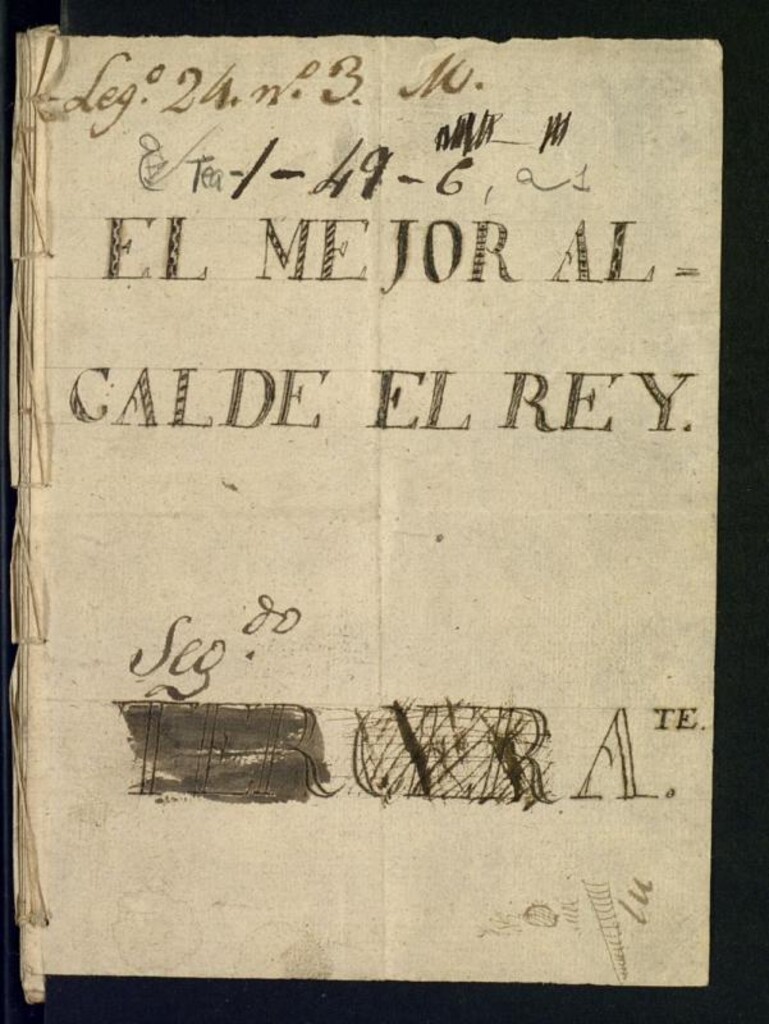 Leg.º 24. nº 3. M.
Tea-1-49-6, a 1
EL MEJOR AL=
CALDE EL REY.
Seg.do
TERCERA TE.